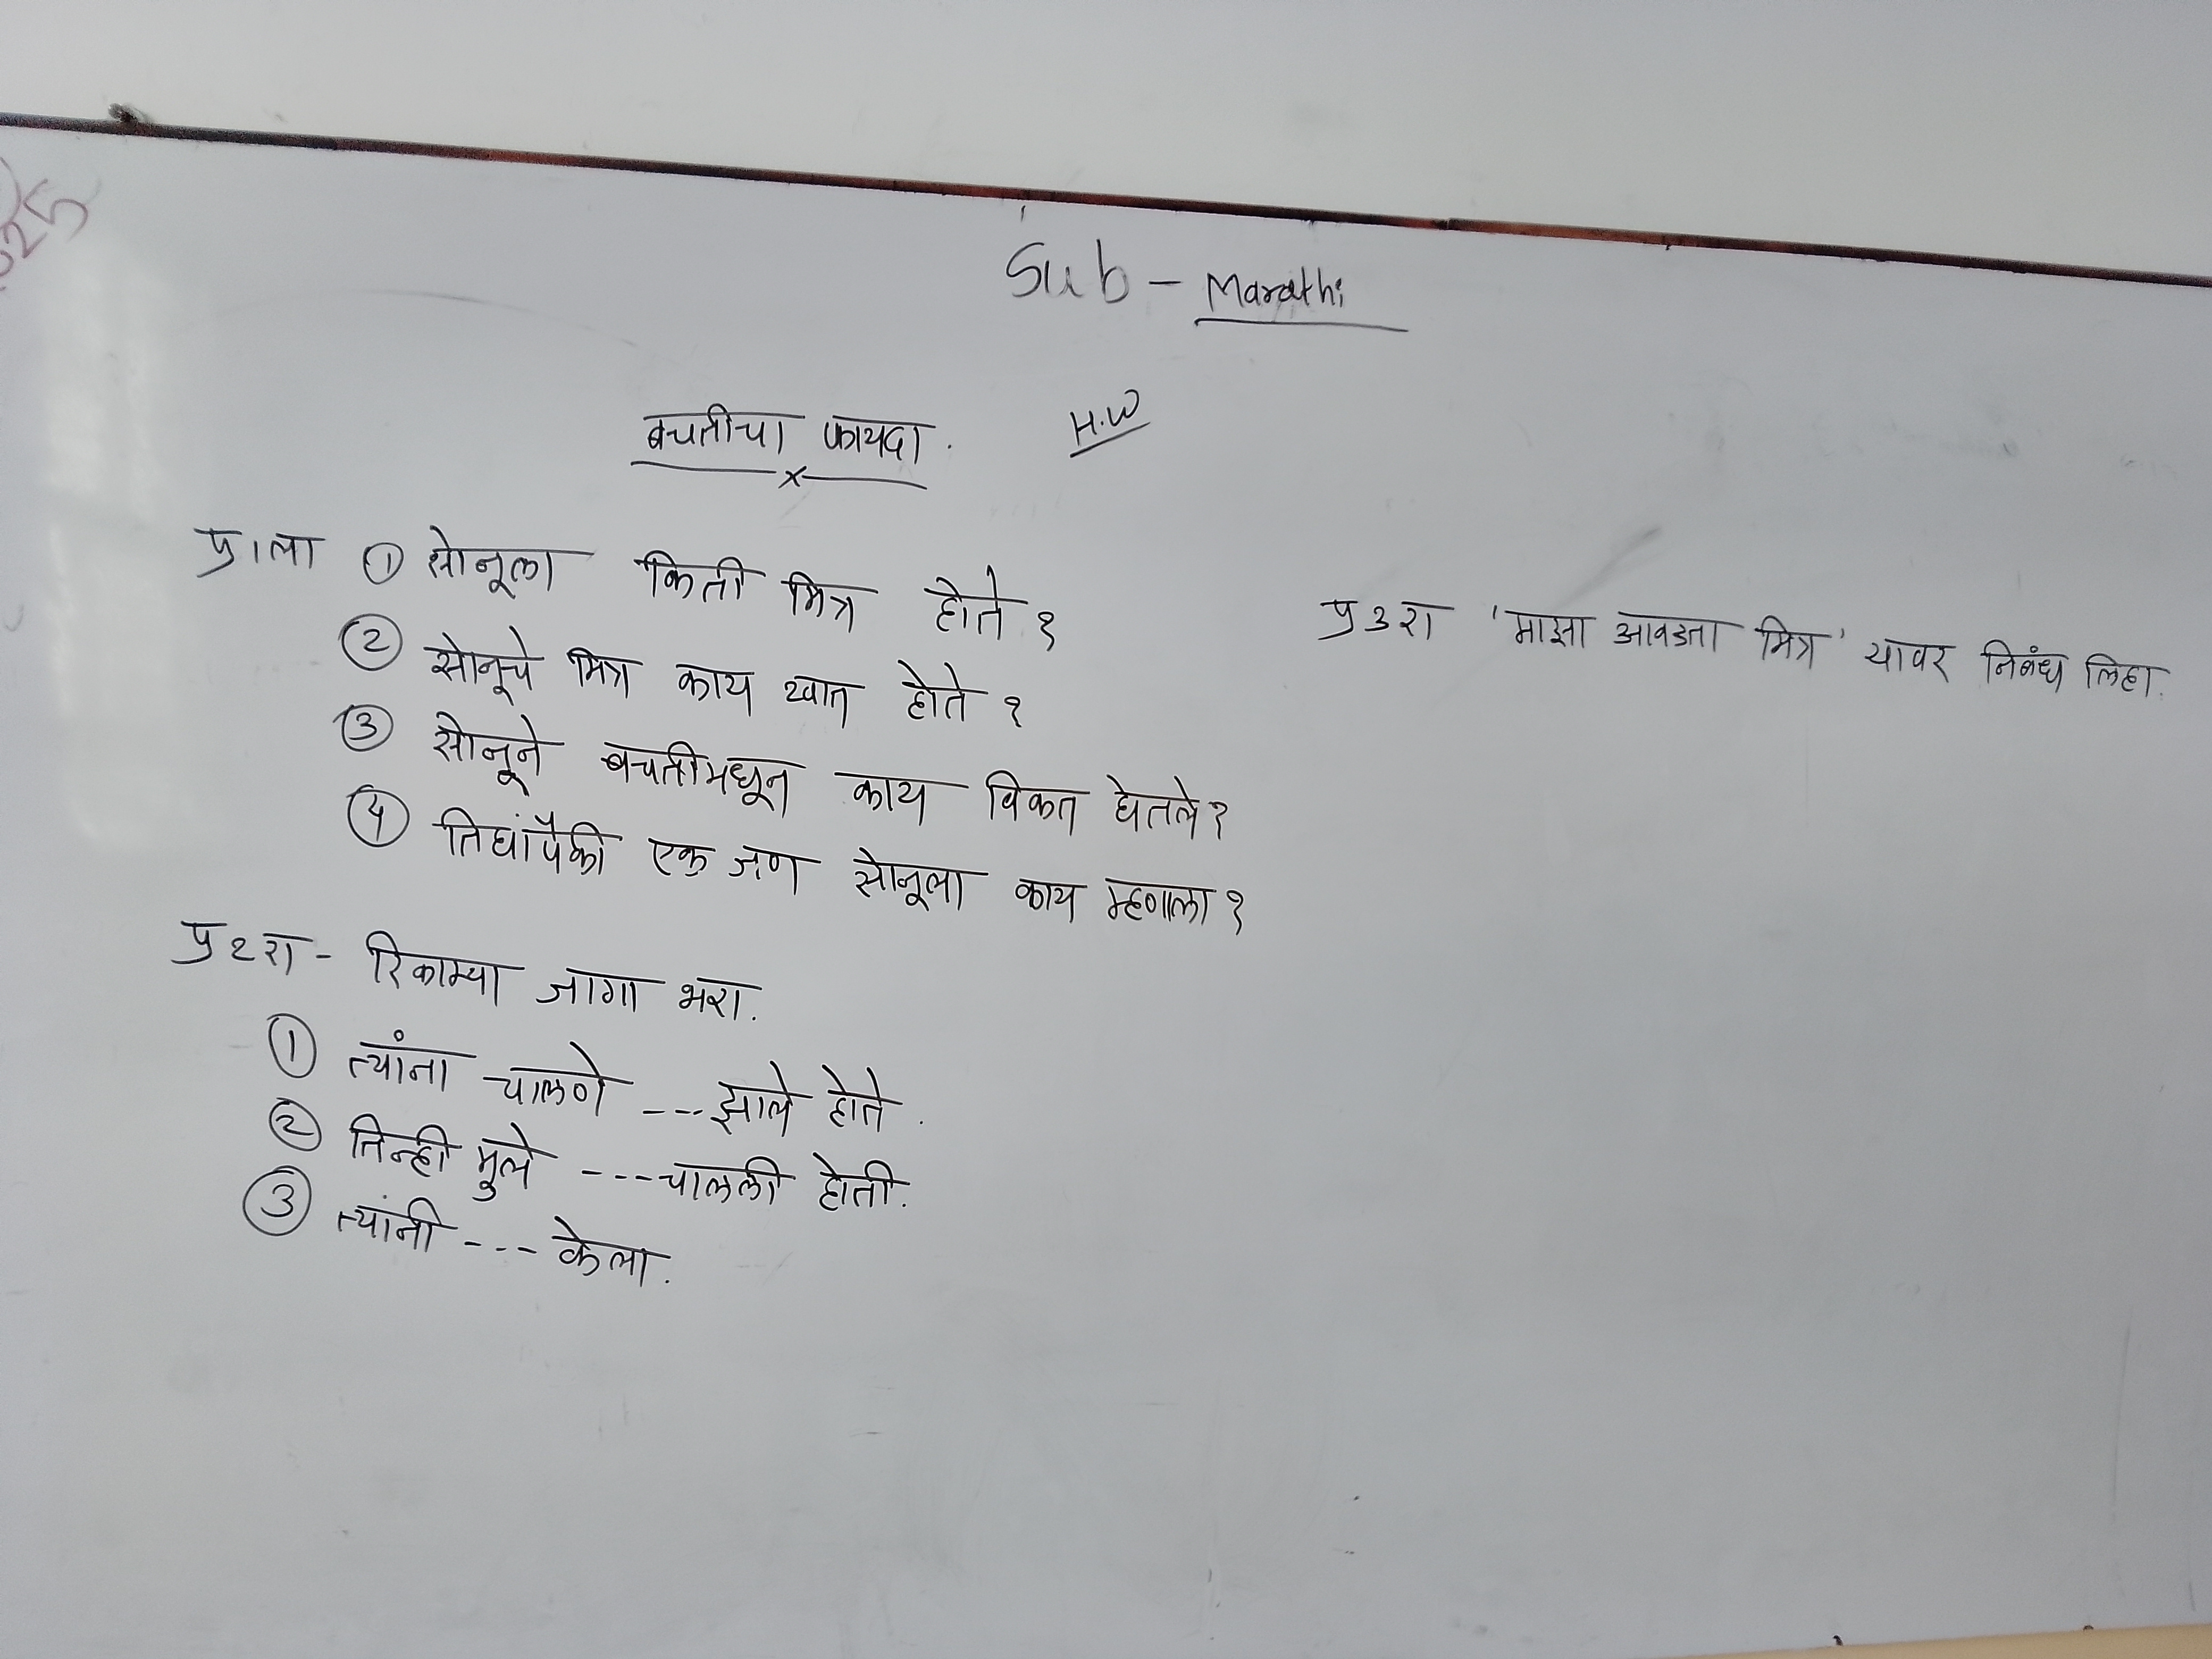 025
Sub - Marathi
बचतीचा फायदा.
H.W
प्र १ला ① सोनूला किती मित्र होते ?
② सोनूचे मित्र काय खात होते ?
③ सोनूने बचतीमधून काय विकत घेतले ?
④ तिघांपैकी एक जण सोनूला काय म्हणाला ?
प्र २रा - रिकाम्या जागा भरा.
① त्यांना चालणे --- झाले होते.
② तिन्ही मुले --- चालली होती.
③ त्यांनी --- केला.
प्र ३रा 'माझा आवडता मित्र' यावर निबंध लिहा.